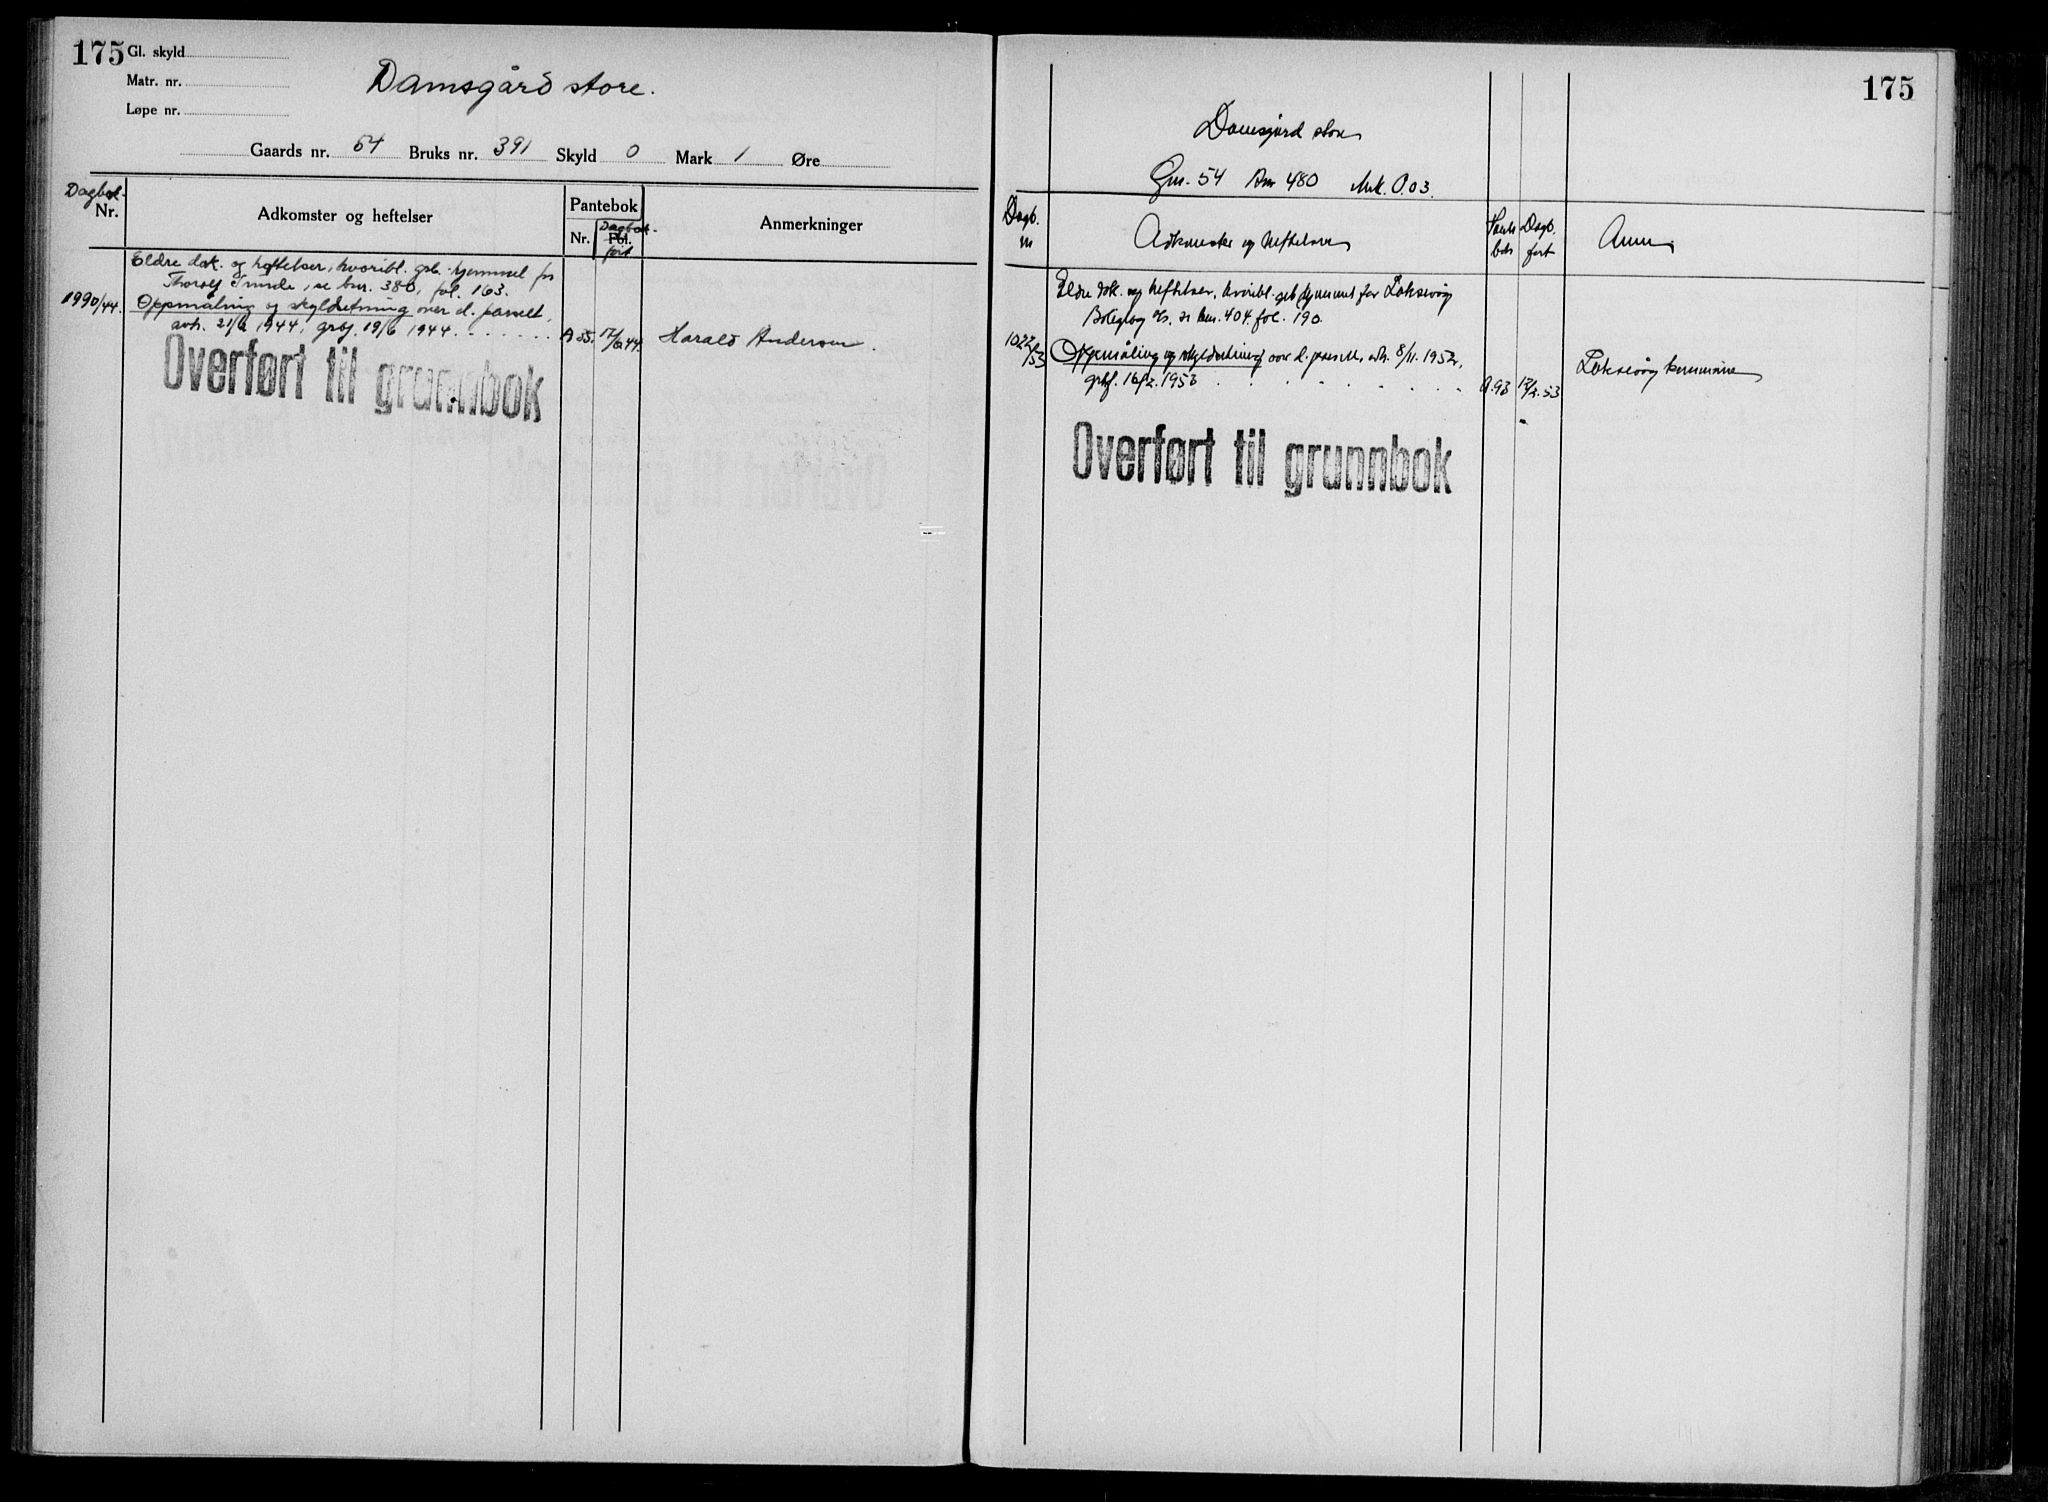 175
Gl. skyld
Matr. nr.
Løpe nr.
Damsgård store.
Gaards nr. 54 Bruks nr. 391 Skyld 0 Mark 1 Øre
Dagbok-
Nr.
Adkomster og heftelser
Pantebok
Nr.
Dagbok-
Fol.
ført
Anmerkninger
Eldre dok. og heftelser, hvoribl. grb. hjemmel for
Thorolf , se bnr. 380, fol. 163.
1990/44. Oppmåling og skyldsetning over d. parsell,
avh. 1944, grbf. 19/6 1944
A 35. 17/6 44. Harald Andersen.
Overført til grunnbok
175
Damsgård store
Gnr. 54 Bnr 480 Mrk. 0.03.
Dagb.
nr
Adkomster og heftelser
Pante
bok
Dagb.
ført
Anm.
Eldre dok. og heftelser, hvoribl. grb hjemmel for Laksevåg
Boligbyg , se bnr. 404. fol. 190.
1022/53 Oppmåling og skyldsetning over d. parsell, avh. 8/11. 1952,
grbf. 16/2. 1953
A.93 17/2.53 Laksevåg kommune
Overført til grunnbok